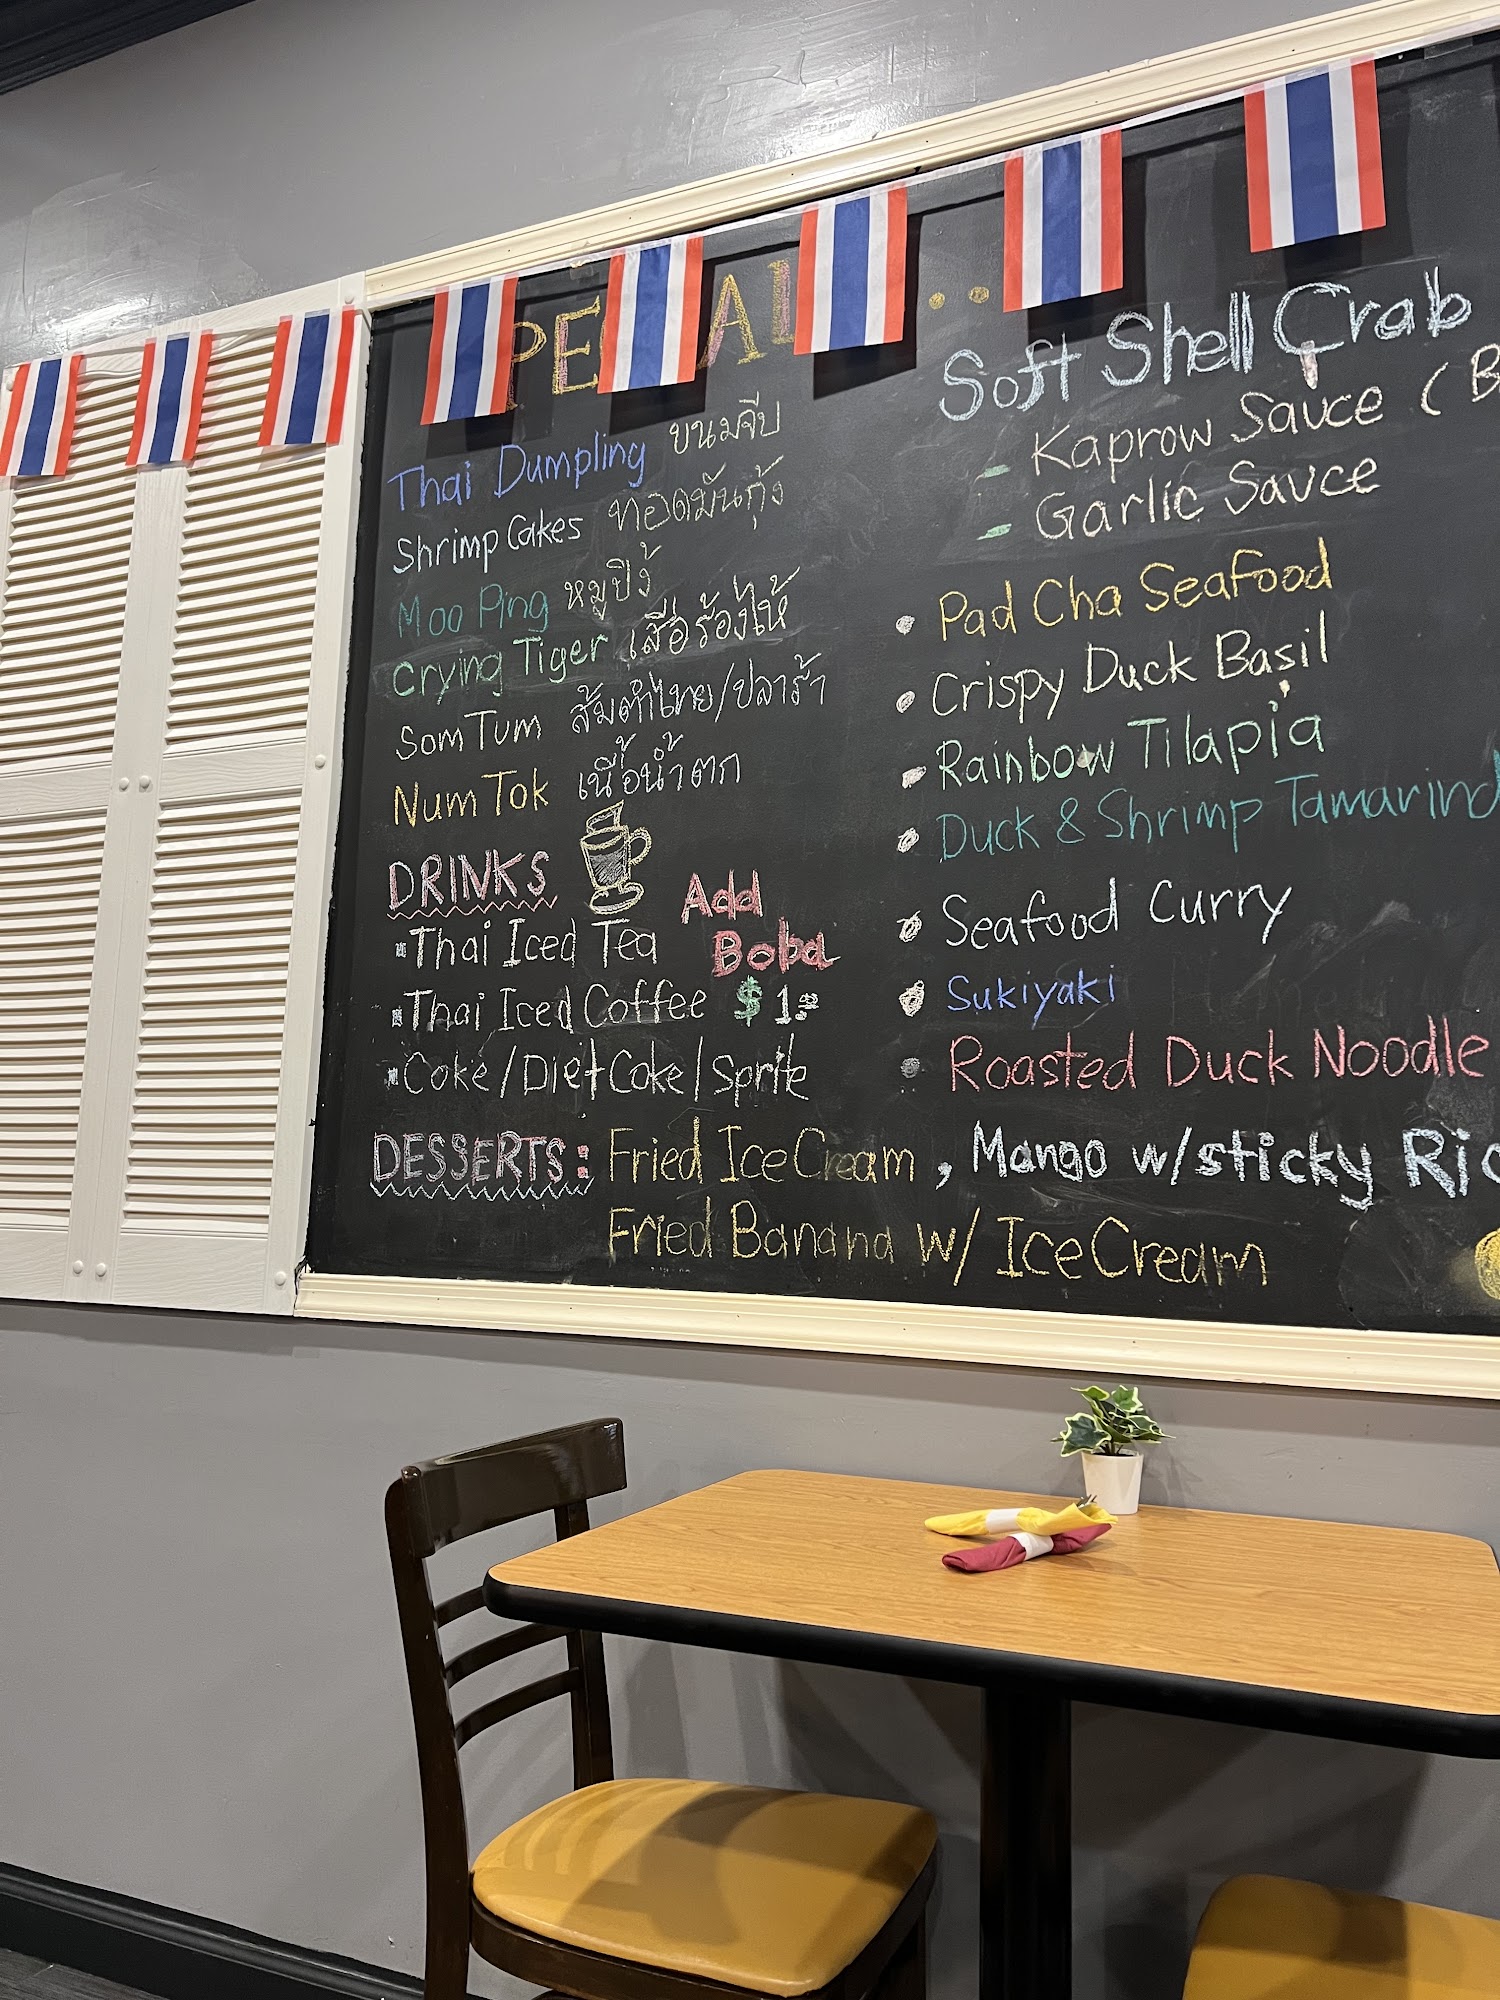 Thai Dumpling ขนมจีบ
Shrimp Cakes ทอดมันกุ้ง
Moo Ping หมูปิ้ง
Crying Tiger เสือร้องไห้
Som Tum ส้มตำไทย/ปลาร้า
Num Tok เนื้อน้ำตก
DRINKS
Thai Iced Tea
Thai Iced Coffee
Coke/Diet Coke/Sprite
Add
Boba
$1.00
Soft Shell Crab
- Kaprow Sauce (B
- Garlic Sauce
• Pad Cha Seafood
• Crispy Duck Basil
• Rainbow Tilapia
• Duck & Shrimp Tamarind
• Seafood Curry
• Sukiyaki
• Roasted Duck Noodle
DESSERTS: Fried Ice Cream, Mango w/sticky Ric
Fried Banana w/ Ice Cream